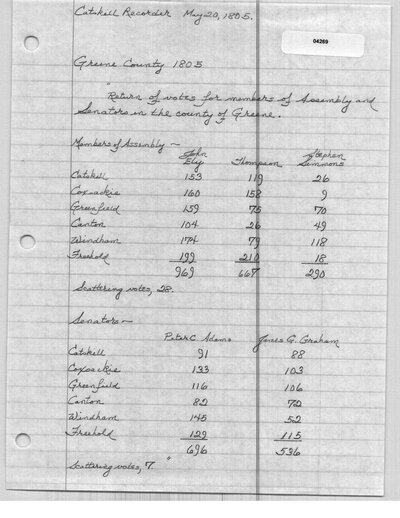 Catskill Recorder May 20, 1805.
04269
Greene County 1805
"Return of votes for members of Assembly and
Senators in the county of Greene.
Members of Assembly —
John Ely Thompson Stephen Simmons
Catskill 153 119 26
Coxsackie 160 158 9
Greenfield 159 75 70
Canton 104 26 49
Windham 174 79 118
Freehold 199 210 18
969 667 290
Scattering votes, 28.
Senators —
Peter C. Adams James G. Graham
Catskill 91 88
Coxsackie 133 103
Greenfield 116 106
Canton 82 72
Windham 145 52
Freehold 129 115
696 536
Scattering votes, 7."